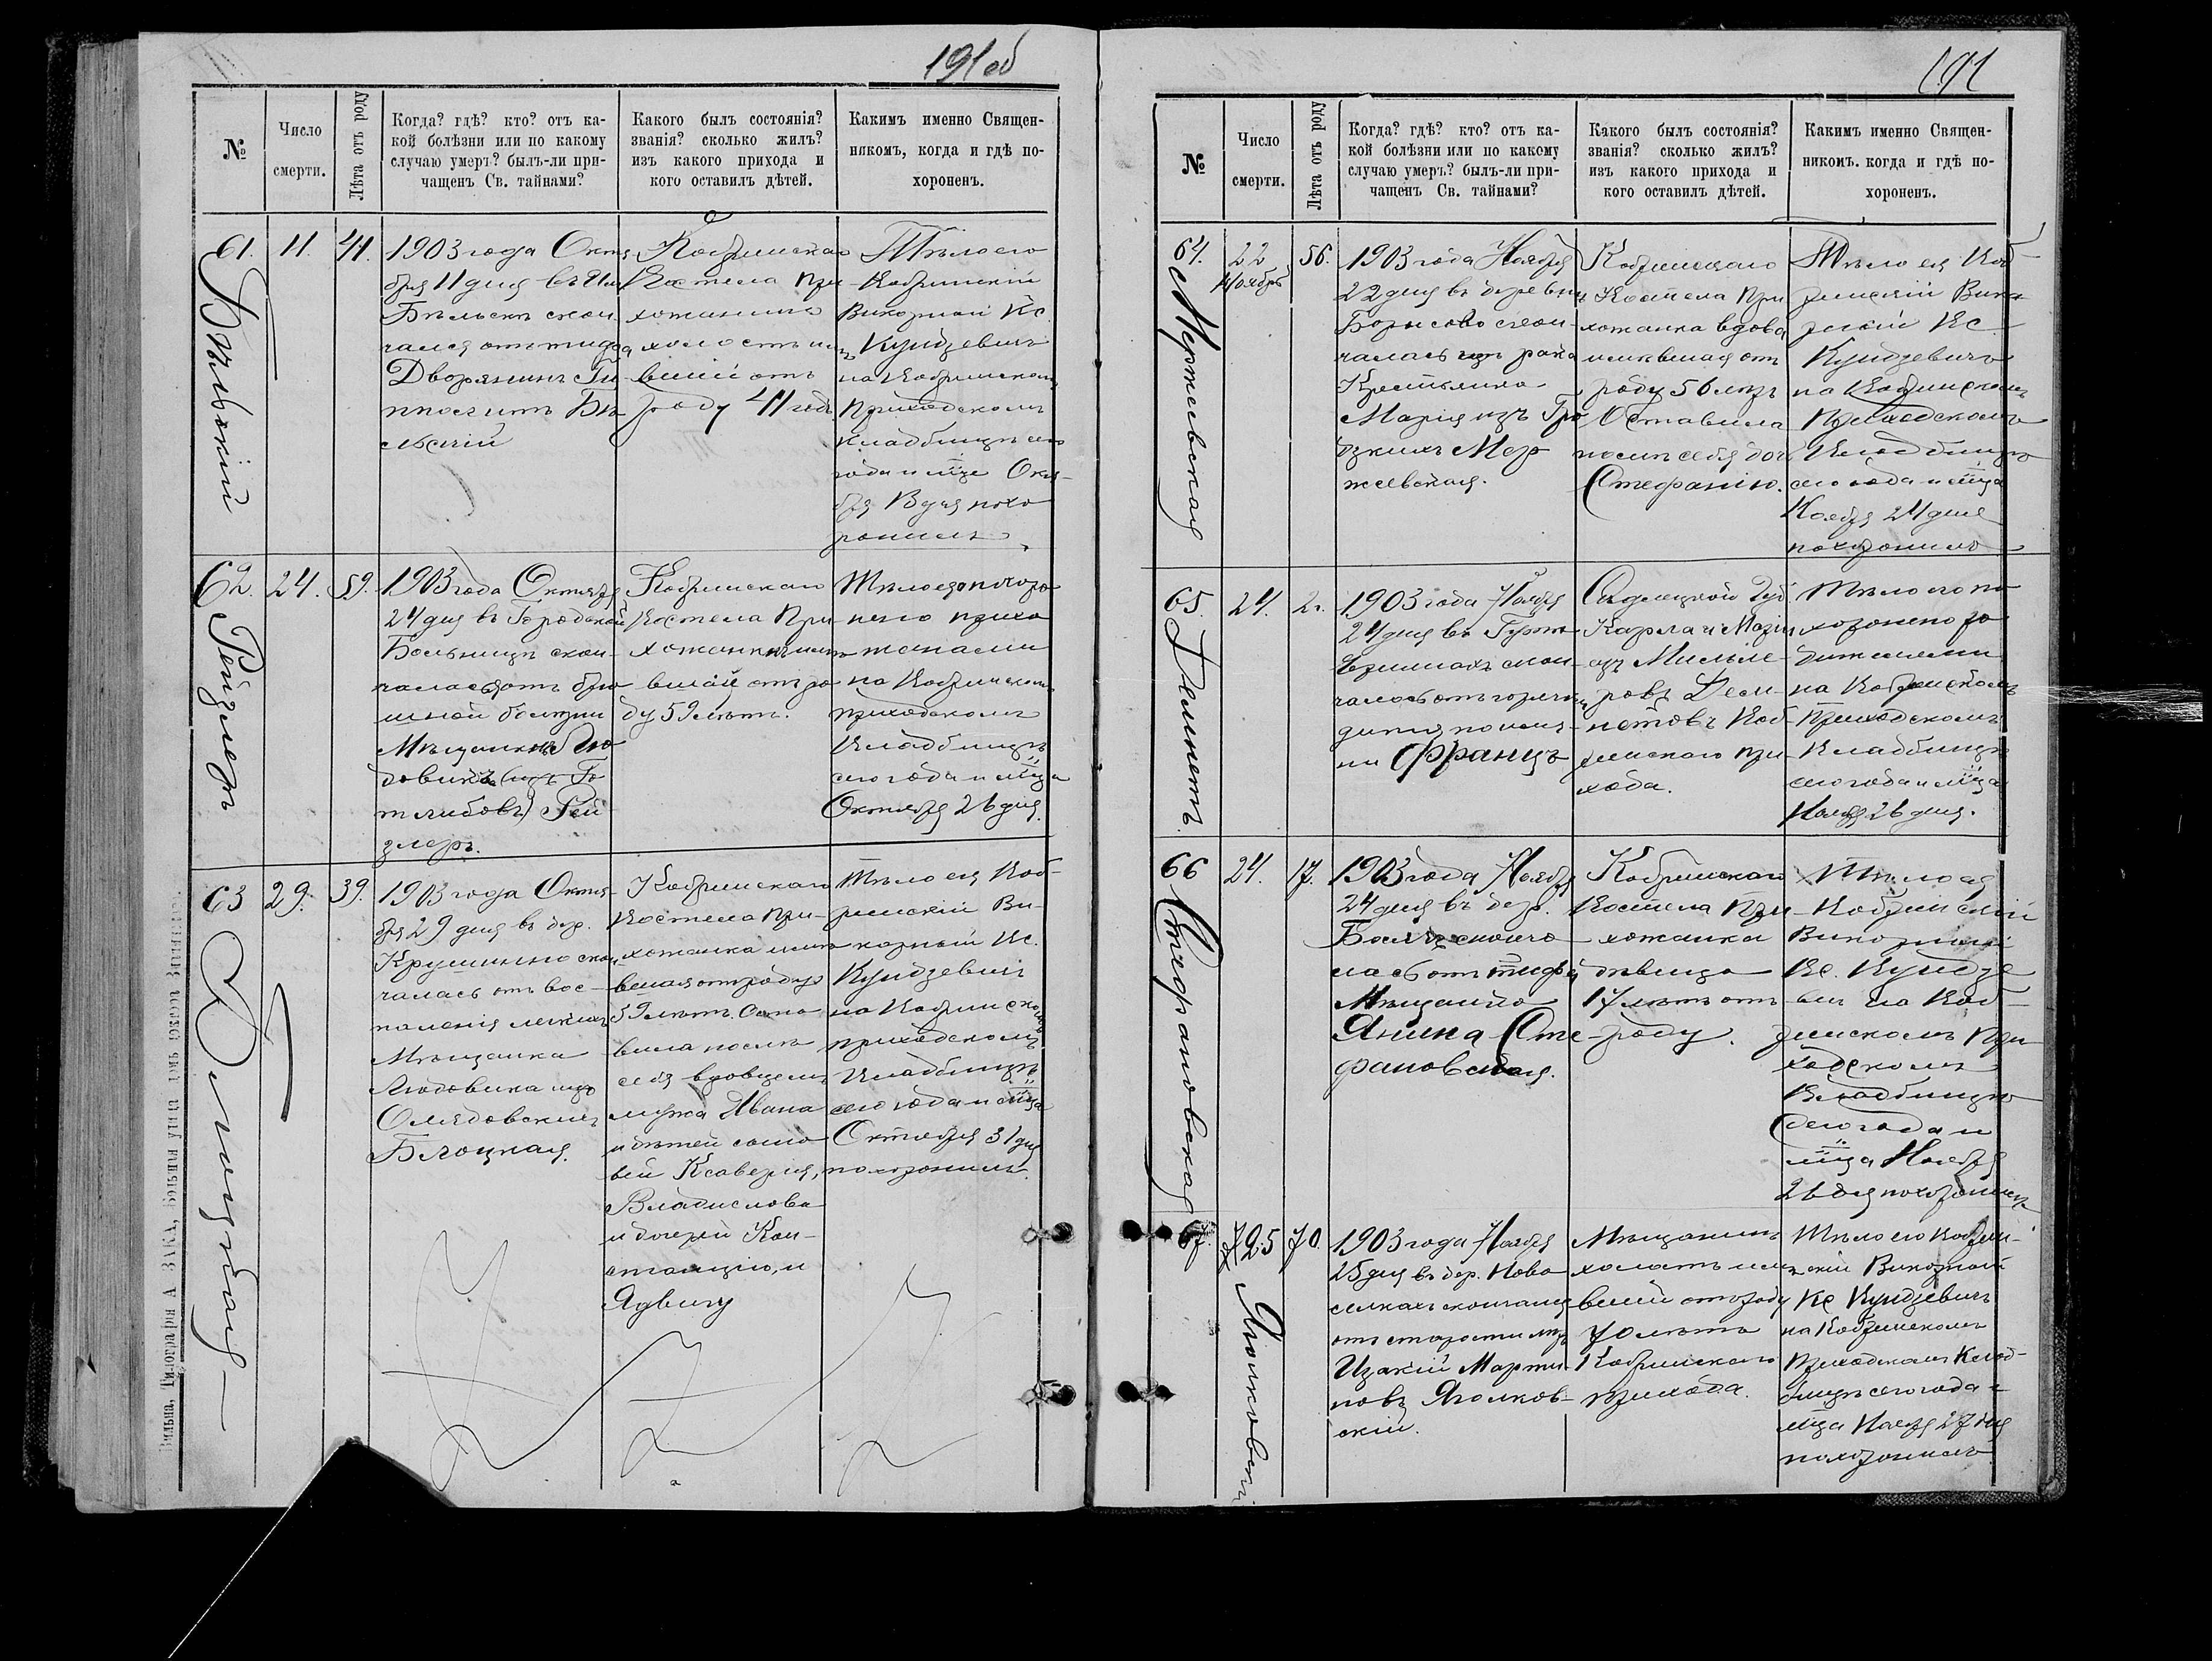 191об
№
Число
смерти.
Лѣта отъ роду
Когда? гдѣ? кто? отъ ка-
кой болѣзни или по какому
случаю умеръ? былъ-ли при-
чащенъ Св. тайнами?
Какого былъ состоянія?
званія? сколько жилъ?
изъ какого прихода и
кого оставилъ дѣтей.
Какимъ именно Священ-
никомъ, когда и гдѣ по-
хороненъ.
61.
Бѣльскій
11.
41.
1903 года Октя-
бря 11 дня въ
Бѣльскъ скон-
чался отъ тифа
Дворянинъ
Бѣ-
льскій
Кобринскаго
Костела При-
хожанинъ
холостъ имѣ
вшій отъ
роду 41 годъ
Тѣло его
Кобринскій
Викарный Кс.
Кундзевичъ
на Кобринскомъ
Приходскомъ
Кладбищѣ сего
года и мца Октя-
бря дня похо
ронилъ
62.
Рейзлеръ
24.
59.
1903 года Октября
24 дня въ Городской
Больницѣ скон-
чалась отъ брю
шной болѣзни
Мѣщанка Лю
довика (изъ Го
тлибовъ) Рей
злеръ.
Кобринскаго
Костела При-
хожанка имѣ
вшая отъ ро
ду 59 лѣтъ.
Тѣло ея похоро
нено прихо
жанами
на Кобринскомъ
приходскомъ
Кладбищѣ
сего года и мца
Октября 26 дня.
63
Блоцкая
29.
39.
1903 года Октя-
бря 29 дня въ дер.
Крушинно скон
чалась отъ вос-
паленія легкихъ
Мѣщанка
Людовика изъ
Олядовскихъ
Блоцкая.
Кобринскаго
Костела При-
хожанка имѣ
вшая отъ роду
39 лѣтъ. Оста
вила послѣ
себя вдовцемъ
мужа Ивана
и дѣтей сыно
вей Ксаверія,
Владислава
и дочерей Кон-
станцію, и
Ядвигу
Тѣло ея Коб-
ринскій Ви-
карный Кс.
Кундзевичъ
на Кобринскомъ
приходскомъ
Кладбищѣ
сего года и мца
Октября 31 дня
похоронилъ.
Вильна, Типографія А. ЗАКА,
191
№
Число
смерти.
Лѣта отъ роду
Когда? гдѣ? кто? отъ ка-
кой болѣзни или по какому
случаю умеръ? былъ-ли при-
чащенъ Св. тайнами?
Какого былъ состоянія?
званія? сколько жилъ?
изъ какого прихода и
кого оставилъ дѣтей.
Какимъ именно Священ-
никомъ. когда и гдѣ по-
хороненъ.
64.
Мержевская
22
Ноября
56.
1903 года Ноября
22 дня въ деревни
Борисово скон-
чалась отъ рака
Крестьянка
Марія изъ Гро
дзкихъ Мер
жевская.
Кобринскаго
Костела При
хожанка вдова
имѣвшая отъ
роду 56 лѣтъ
Оставила
послѣ себя дочь
Стефанію.
Тѣло ея Коб-
ринскій Вика
рный Кс
Кундзевичъ
на Кобринскомъ
Приходскомъ
Кладбищѣ
сего года и мца
Ноября 24 дня
похоронилъ
65.
Деминетъ
24.
2.
1903 года Ноября
24 дня въ
скон
чалось отъ горячк
дитя по име-
ни Францъ
Сѣдлецкой Губ
Карла и Маріи
изъ
ровъ Деми-
нетовъ Коб-
ринскаго при
хода.
Тѣло его по
хоронено ро
дителями
на Кобринскомъ
Приходскомъ
Кладбищѣ
сего года и мца
Ноября 26 дня.
66
Стефановская
24.
17.
1903 года Ноября
24 дня въ дер.
сконча
лась отъ тифа
Мѣщанка
Янина Сте-
фановская.
Кобринскаго
Костела При-
хожанка
дѣвица
17 лѣтъ отъ
роду.
Тѣло ея
Кобринскій
Викарный
Кс. Кундзе
вичъ на Коб-
ринскомъ При
ходскомъ
Кладбищѣ
сего года и
мца Ноября
26 дня похоронилъ
67.
Яголковскій
25
70.
1903 года Ноября
25 дня въ дер. Ново
селкахъ скончался
отъ старости лѣтъ
Мартин
новъ Яголков-
скій.
Мѣщанинъ
холостъ имѣ
вшій отъ роду
70 лѣтъ
Кобринскаго
прихода.
Тѣло его Кобрин-
скій Викарный
Кс Кундзевичъ
на Кобринскомъ
Приходскомъ Клад-
бищѣ сего года и
мца Ноября 27 дня
похоронилъ